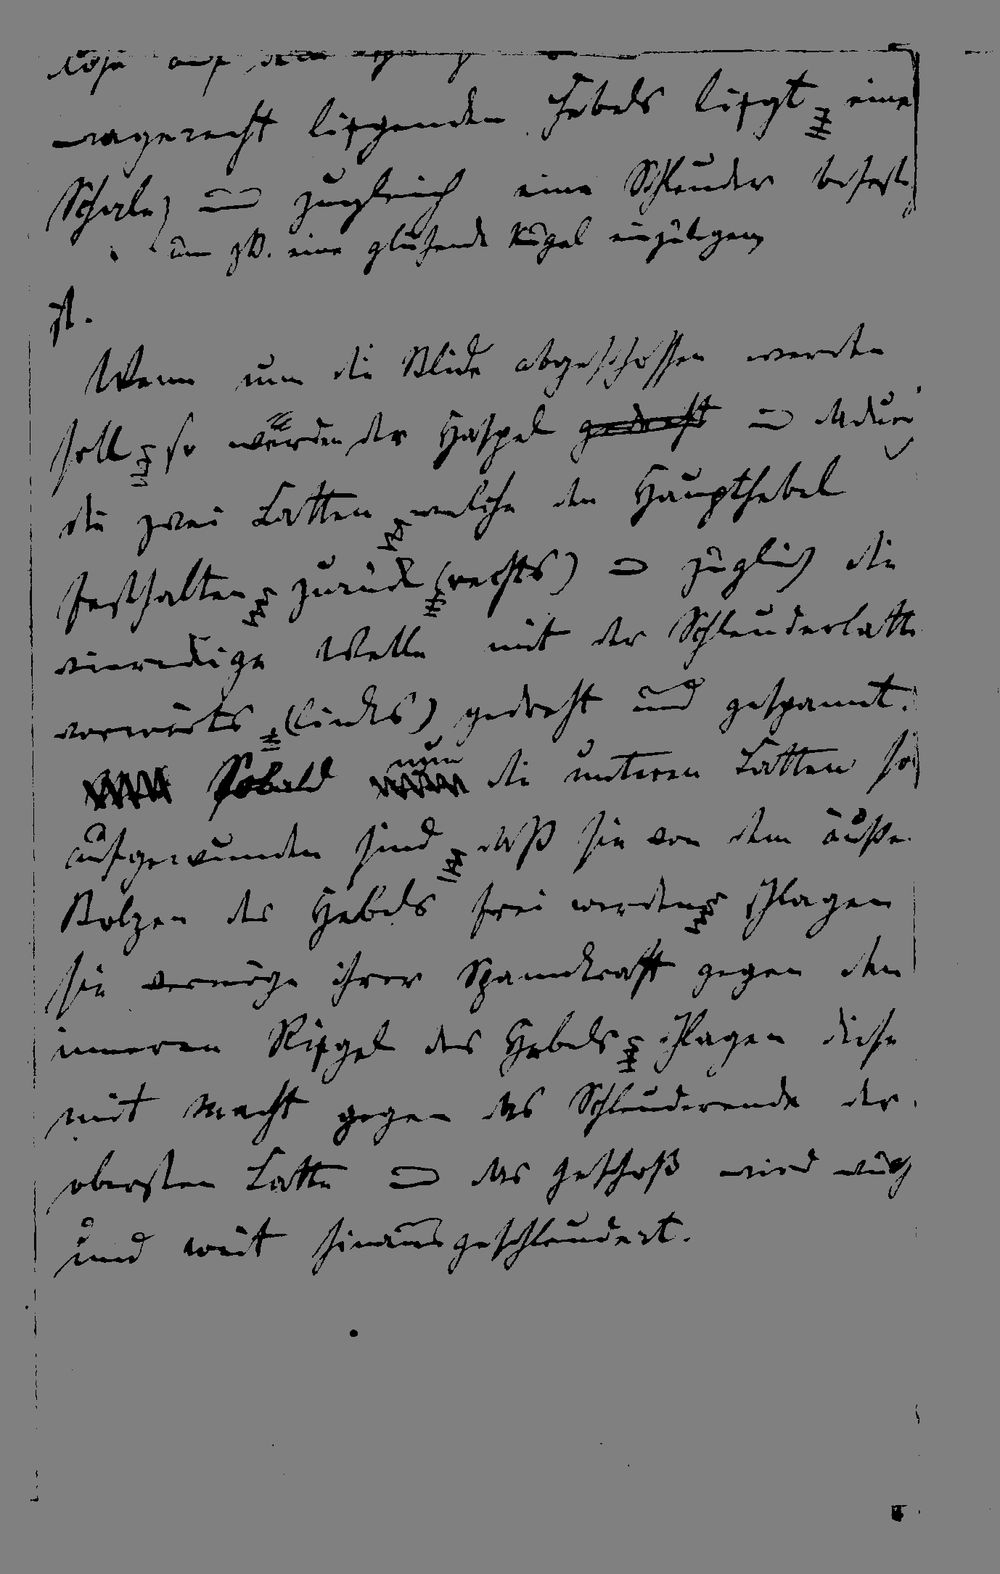 wagerecht liegenden Hebels liegt, eine
Schale, und zugleich eine Schleuder befest
um zB. eine glühende Kugel einzulegen,
ist.
Wenn nun die Blide abgeschossen werden
soll, so werden der Haspel gedreht und dadurch
die zwei Latten, welche den Haupthebel
festhalten, zurück (rechts) und zugleich die
viereckige Welle mit der Schleuderlatte
vorwärts (links) gedreht und gespannt.
Sobald nun die unteren Latten so
aufgewunden sind, daß sie von dem äuße
Bolzen des Hebels frei werden, schlagen
sie vermöge ihrer Spannkraft gegen den
inneren Riegel des Hebels, schlagen diese
mit Macht gegen das Schleuderende der
obersten Latte und das Geschoß wird
und weit hinausgeschleudert.